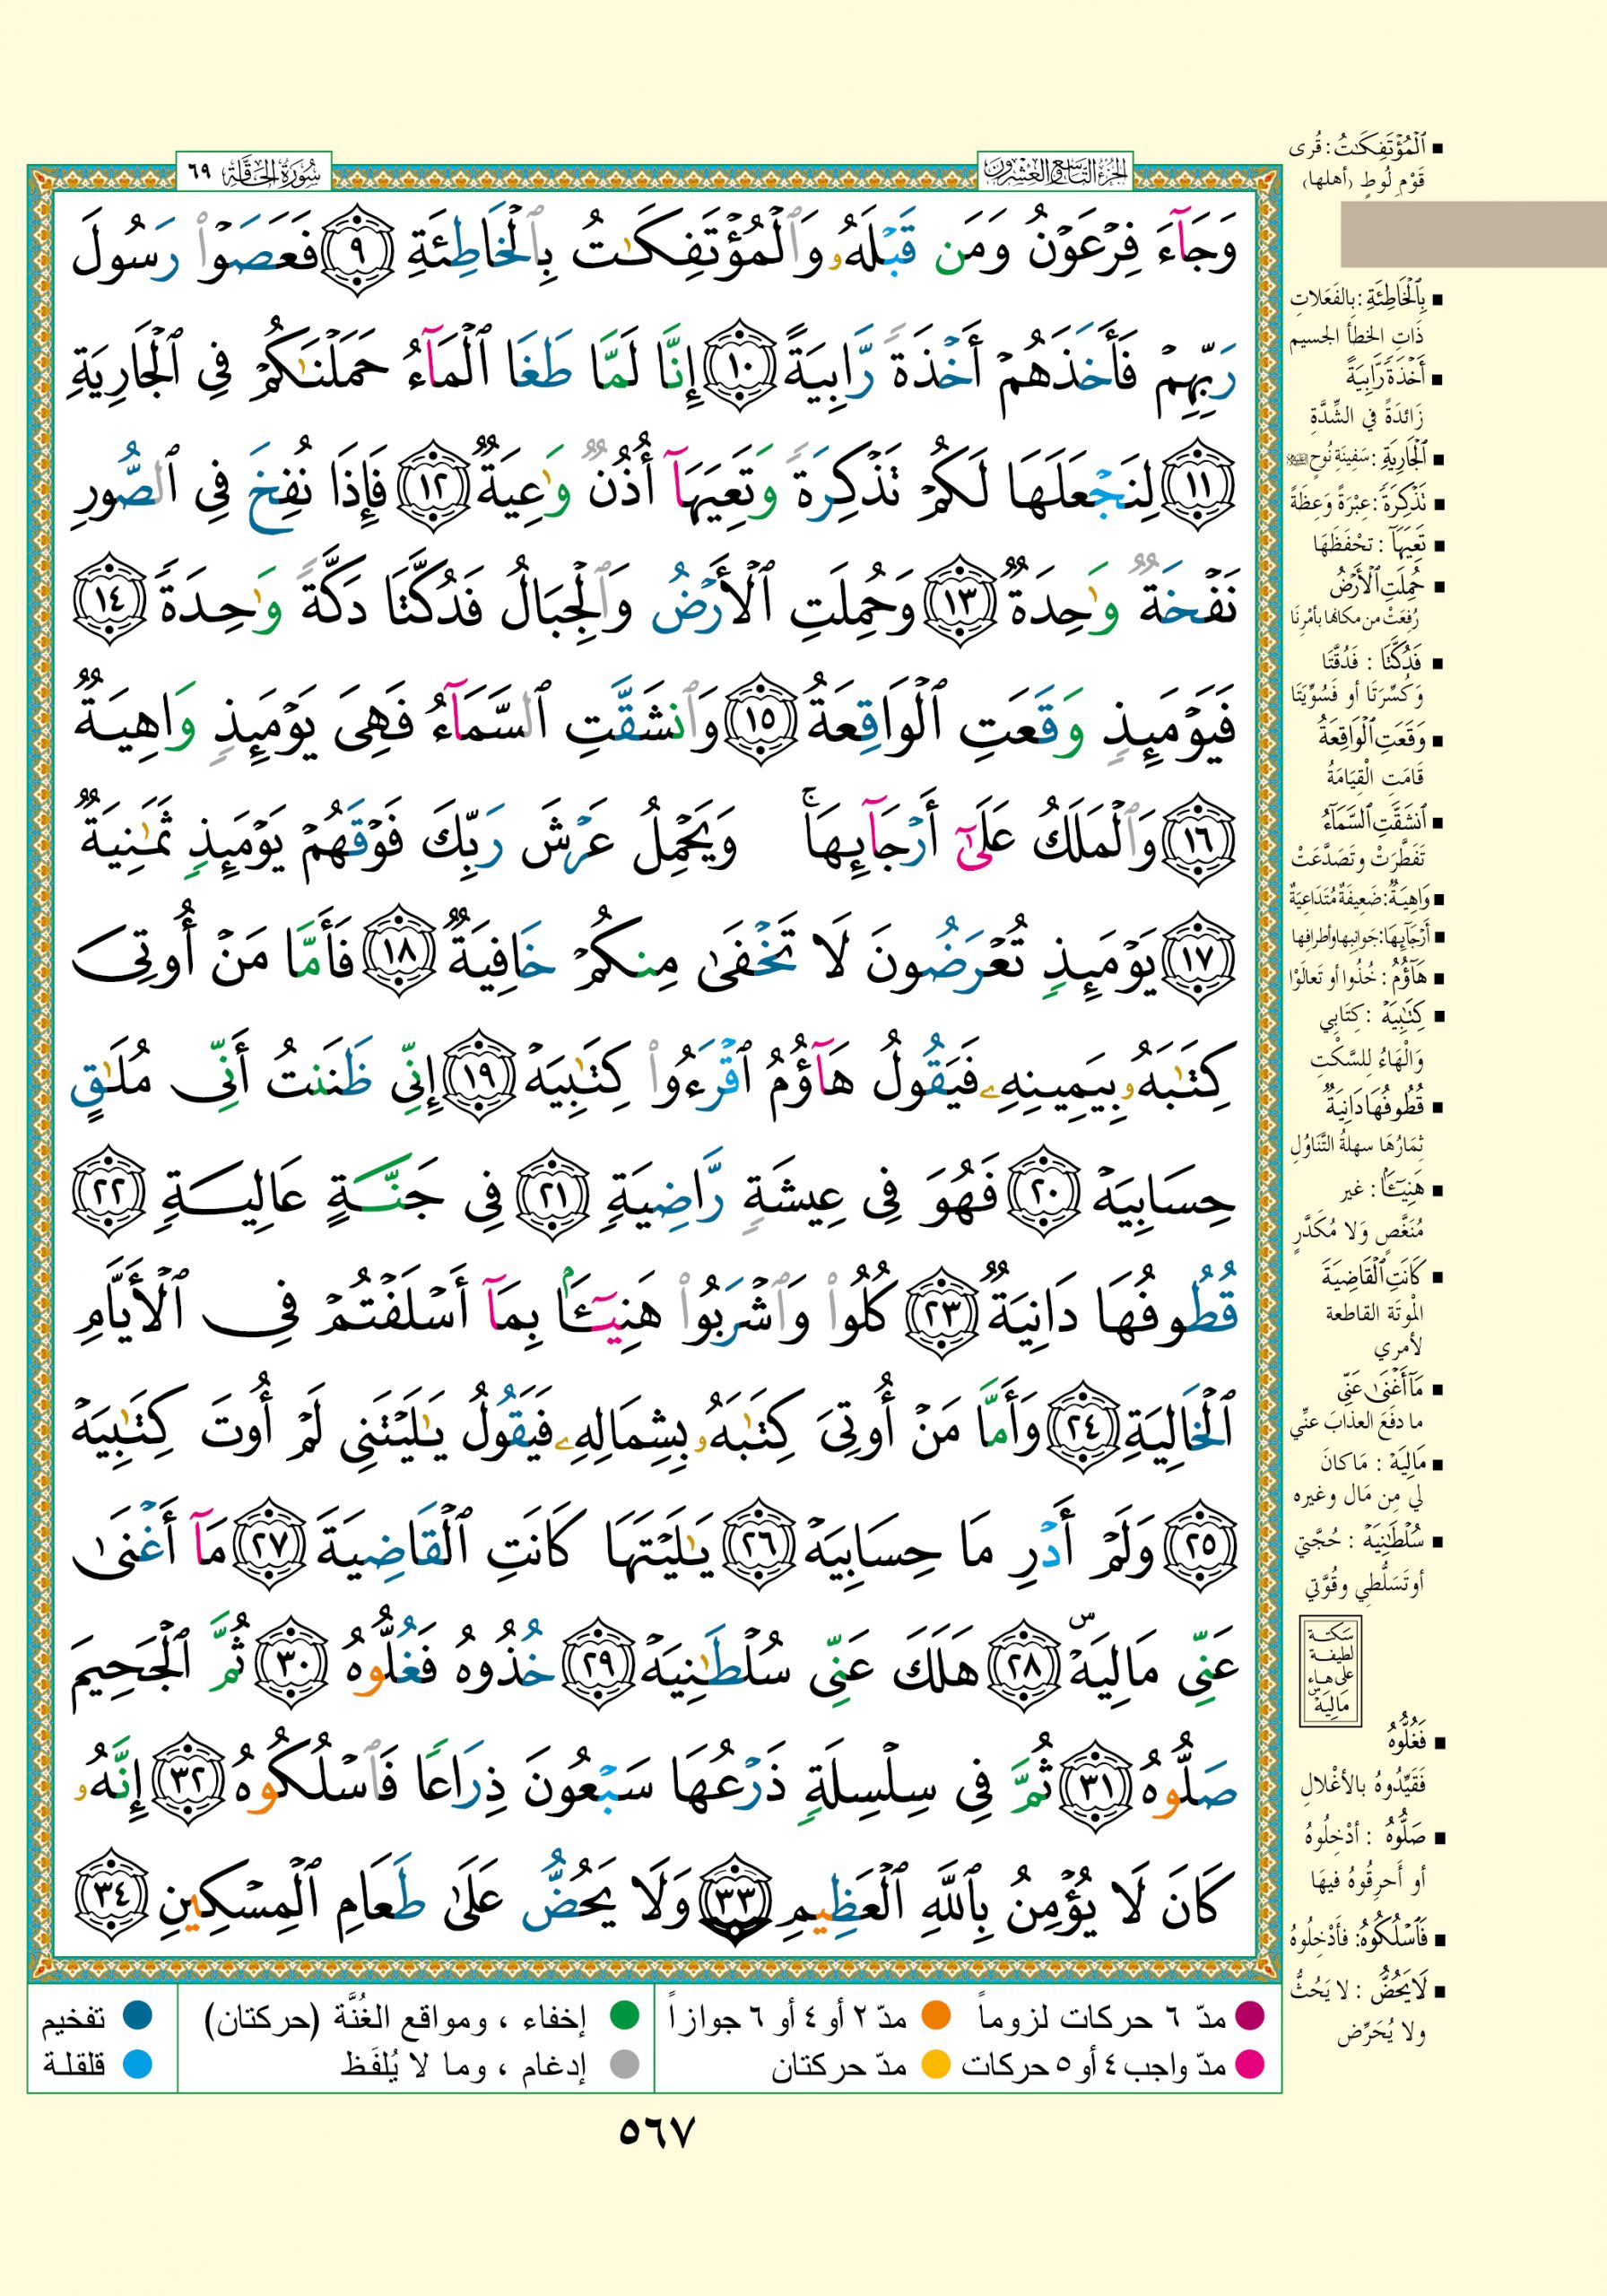 الجزء التاسع والعشرون
سُورَةُ الحَاقَّة ٦٩
وَجَآءَ فِرْعَوْنُ وَمَن قَبْلَهُۥ وَٱلْمُؤْتَفِكَـٰتُ بِٱلْخَاطِئَةِ ۝٩ فَعَصَوْا۟ رَسُولَ
رَبِّهِمْ فَأَخَذَهُمْ أَخْذَةً رَّابِيَةً ۝١٠ إِنَّا لَمَّا طَغَا ٱلْمَآءُ حَمَلْنَـٰكُمْ فِى ٱلْجَارِيَةِ
۝١١ لِنَجْعَلَهَا لَكُمْ تَذْكِرَةً وَتَعِيَهَآ أُذُنٌ وَٰعِيَةٌ ۝١٢ فَإِذَا نُفِخَ فِى ٱلصُّورِ
نَفْخَةٌ وَٰحِدَةٌ ۝١٣ وَحُمِلَتِ ٱلْأَرْضُ وَٱلْجِبَالُ فَدُكَّتَا دَكَّةً وَٰحِدَةً ۝١٤
فَيَوْمَئِذٍ وَقَعَتِ ٱلْوَاقِعَةُ ۝١٥ وَٱنشَقَّتِ ٱلسَّمَآءُ فَهِىَ يَوْمَئِذٍ وَاهِيَةٌ
۝١٦ وَٱلْمَلَكُ عَلَىٰٓ أَرْجَآئِهَا ۚ وَيَحْمِلُ عَرْشَ رَبِّكَ فَوْقَهُمْ يَوْمَئِذٍ ثَمَـٰنِيَةٌ
۝١٧ يَوْمَئِذٍ تُعْرَضُونَ لَا تَخْفَىٰ مِنكُمْ خَافِيَةٌ ۝١٨ فَأَمَّا مَنْ أُوتِىَ
كِتَـٰبَهُۥ بِيَمِينِهِۦ فَيَقُولُ هَآؤُمُ ٱقْرَءُوا۟ كِتَـٰبِيَهْ ۝١٩ إِنِّى ظَنَنتُ أَنِّى مُلَـٰقٍ
حِسَابِيَهْ ۝٢٠ فَهُوَ فِى عِيشَةٍ رَّاضِيَةٍ ۝٢١ فِى جَنَّةٍ عَالِيَةٍ ۝٢٢
قُطُوفُهَا دَانِيَةٌ ۝٢٣ كُلُوا۟ وَٱشْرَبُوا۟ هَنِيٓـًٔۢا بِمَآ أَسْلَفْتُمْ فِى ٱلْأَيَّامِ
ٱلْخَالِيَةِ ۝٢٤ وَأَمَّا مَنْ أُوتِىَ كِتَـٰبَهُۥ بِشِمَالِهِۦ فَيَقُولُ يَـٰلَيْتَنِى لَمْ أُوتَ كِتَـٰبِيَهْ
۝٢٥ وَلَمْ أَدْرِ مَا حِسَابِيَهْ ۝٢٦ يَـٰلَيْتَهَا كَانَتِ ٱلْقَاضِيَةَ ۝٢٧ مَآ أَغْنَىٰ
عَنِّى مَالِيَهْ ۜ ۝٢٨ هَلَكَ عَنِّى سُلْطَـٰنِيَهْ ۝٢٩ خُذُوهُ فَغُلُّوهُ ۝٣٠ ثُمَّ ٱلْجَحِيمَ
صَلُّوهُ ۝٣١ ثُمَّ فِى سِلْسِلَةٍ ذَرْعُهَا سَبْعُونَ ذِرَاعًا فَٱسْلُكُوهُ ۝٣٢ إِنَّهُۥ
كَانَ لَا يُؤْمِنُ بِٱللَّهِ ٱلْعَظِيمِ ۝٣٣ وَلَا يَحُضُّ عَلَىٰ طَعَامِ ٱلْمِسْكِينِ ۝٣٤
■ ٱلْمُؤْتَفِكَـٰتُ : قُرى
قَوْمِ لُوطٍ (أهلها)
■ بِٱلْخَاطِئَةِ : بِالفَعَلاتِ
ذَاتِ الخطأ الجسيم
■ أَخْذَةً رَّابِيَةً
زَائدَةً في الشِّدَّةِ
■ ٱلْجَارِيَةِ : سَفِينَةِ نُوحٍ
■ تَذْكِرَةً : عِبْرَةً وَعِظَةً
■ تَعِيَهَآ : تَحْفَظَهَا
■ حُمِلَتِ ٱلْأَرْضُ
رُفِعَتْ من مكانها بأَمْرِنَا
■ فَدُكَّتَا : فَدُقَّتَا
وَكُسِّرَتَا أو فَسُوِّيَتَا
■ وَقَعَتِ ٱلْوَاقِعَةُ
قَامَتِ الْقِيَامَةُ
■ ٱنشَقَّتِ ٱلسَّمَآءُ
تَفَطَّرَتْ وتَصَدَّعَتْ
■ وَاهِيَةٌ : ضَعِيفَةٌ مُتَدَاعِيَةٌ
■ أَرْجَآئِهَا : جَوانِبِها وأطرافِها
■ هَآؤُمُ : خُذُوا أو تَعالَوْا
■ كِتَـٰبِيَهْ : كِتَابِي
وَالْهَاءُ لِلسَّكْتِ
■ قُطُوفُهَا دَانِيَةٌ
ثِمَارُهَا سهلةُ التَّنَاوُلِ
■ هَنِيٓـًٔۢا : غير
مُنَغَّصٍ وَلا مُكَدَّرٍ
■ كَانَتِ ٱلْقَاضِيَةَ
الْموتَة القاطعة
لأمري
■ مَآ أَغْنَىٰ عَنِّى
ما دفَعَ العذابَ عنِّي
■ مَالِيَهْ : مَا كانَ
لي مِن مَال وغيره
■ سُلْطَـٰنِيَهْ : حُجَّتِي
أو تَسَلُّطِي وقُوَّتِي
سكتة
لطيفة
على هاء
مَالِيَهْ
■ فَغُلُّوهُ
فَقَيِّدُوهُ بالأغْلالِ
■ صَلُّوهُ : أدْخِلُوهُ
أو أَحرِقُوهُ فيهَا
■ فَٱسْلُكُوهُ : فأَدْخِلُوهُ
■ لَا يَحُضُّ : لا يَحُثُّ
ولا يُحَرِّض
مدّ ٦ حركات لزوماً ● مدّ ٢ أو ٤ أو ٦ جوازاً ● إخفاء ، ومواقع الغُنَّة (حركتان) ● تفخيم
مدّ واجب ٤ أو ٥ حركات ● مدّ حركتان ● إدغام ، وما لا يُلفَظ ● قلقلة
٥٦٧